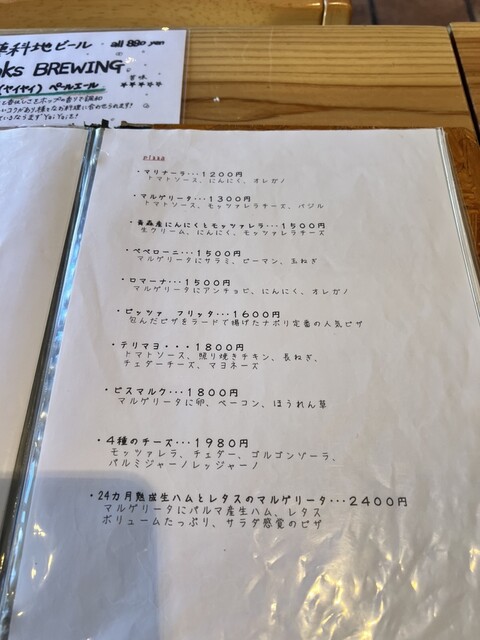 科地ビール all 880 yen
oks BREWING
(イヤイヤイ) ペールエール
pizza
・マリナーラ・・・1200円
トマトソース、にんにく、オレガノ
・マルゲリータ・・・1300円
トマトソース、モッツァレラチーズ、バジル
・青森産にんにくとモッツァレラ・・・1500円
生クリーム、にんにく、モッツァレラチーズ
・ペペローニ・・・1500円
マルゲリータにサラミ、ピーマン、玉ねぎ
・ロマーナ・・・1500円
マルゲリータにアンチョビ、にんにく、オレガノ
・ピッツァ フリッタ・・・1600円
包んだピザをラードで揚げたナポリ定番の人気ピザ
・テリマヨ・・・1800円
トマトソース、照り焼きチキン、長ねぎ、
チェダーチーズ、マヨネーズ
・ビスマルク・・・1800円
マルゲリータに卵、ベーコン、ほうれん草
・4種のチーズ・・・1980円
モッツァレラ、チェダー、ゴルゴンゾーラ、
パルミジャーノレッジャーノ
・24カ月熟成生ハムとレタスのマルゲリータ・・・2400円
マルゲリータにパルマ産生ハム、レタス
ボリュームたっぷり、サラダ感覚のピザ